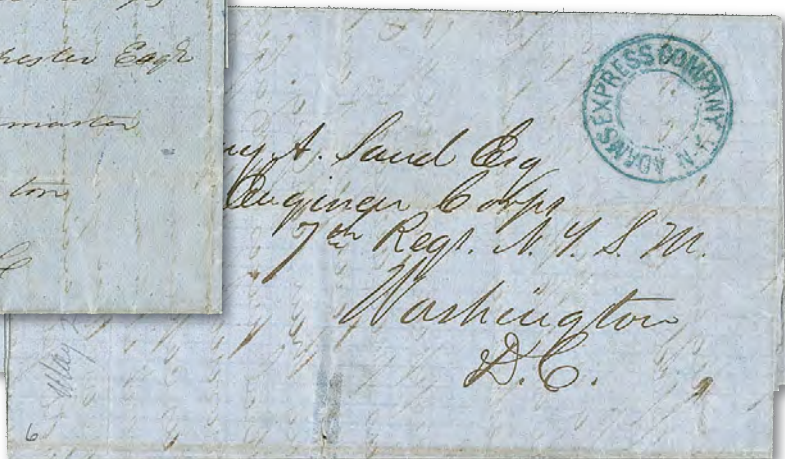 Esqr
master
ton
ADAMS EXPRESS COMPANY N.
A. Sand Esq
Engineer Corps
7th Regt. N. Y. S. M.
Washington
D. C.
May
6